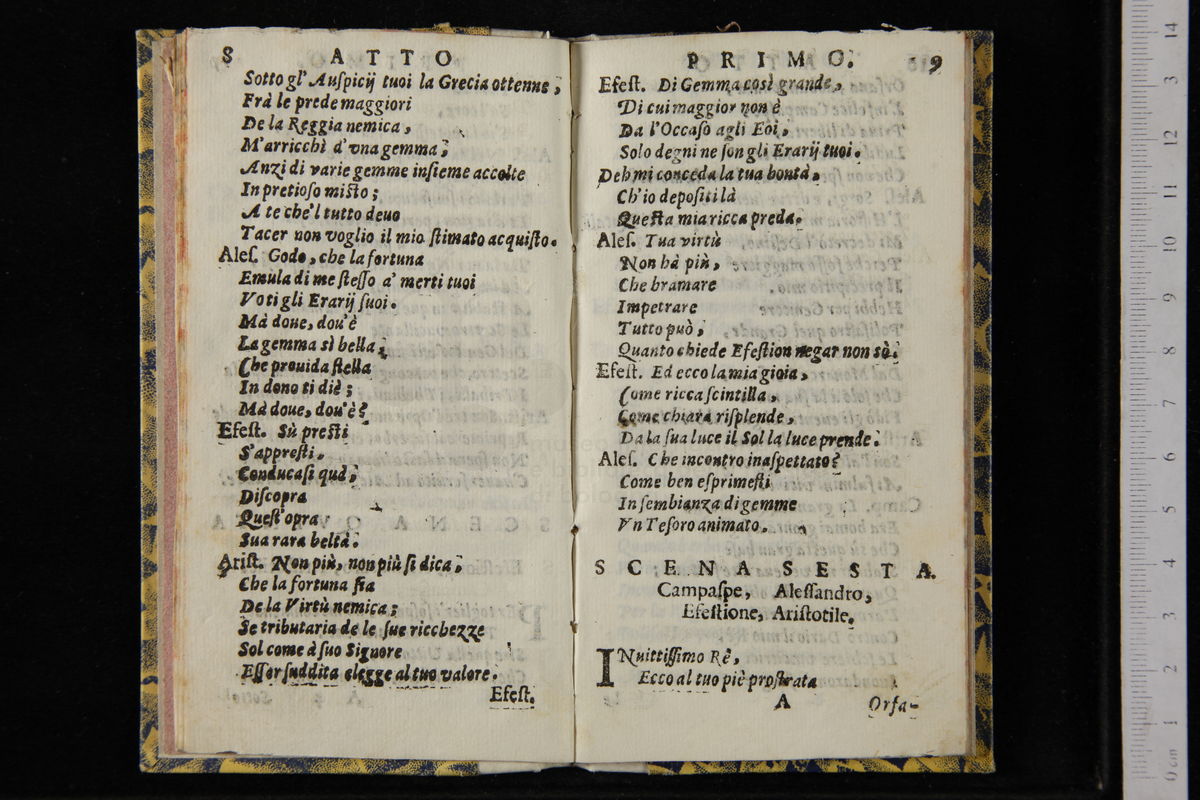 8 ATTO
Sotto gl' Auſpicij tuoi la Grecia ottenne,
Frà le prede maggiori
De la Reggia nemica,
M'arricchì d'vna gemma;
Anzi di varie gemme inſieme accolte
In pretioſo miſto;
A te che'l tutto deuo
Tacer non voglio il mio ſtimato acquiſto.
Aleſ. Godo, che la fortuna
Emula di me ſteſſo a' merti tuoi
Voti gli Erarij ſuoi.
Mà doue, dou'è
La gemma sì bella;
Che prouida ſtella
In dono ti diè;
Mà doue, dou'è?
Efeſt. Sù preſti
S'appreſti.
Conducaſi quà;
Diſcopra
Queſt'opra
Sua rara beltà.
Ariſt. Non più, non più ſi dica,
Che la fortuna ſia
De la Virtù nemica;
Se tributaria de le ſue ricchezze
Sol come à ſuo Signore
Eſſer ſuddita elegge al tuo valore.
Efeſt.
PRIMO. 9
Efeſt. Di Gemma così grande,
Di cui maggior non è
Da l'Occaſo agli Eoi,
Solo degni ne ſon gli Erarij tuoi.
Deh mi conceda la tua bontà,
Ch'io depoſiti là
Queſta mia ricca preda.
Aleſ. Tua virtù
Non hà più,
Che bramare
Impetrare
Tutto può,
Quanto chiede Efeſtion negar non sò.
Efeſt. Ed ecco la mia gioia,
Come ricca ſcintilla,
Come chiara riſplende,
Da la ſua luce il Sol la luce prende.
Aleſ. Che incontro inaſpettato?
Come ben eſprimeſti
In ſembianza di gemme
Vn Teſoro animato.
SCENA SESTA.
Campaſpe, Aleſſandro,
Efeſtione, Ariſtotile.
INuittiſſimo Rè,
Ecco al tuo piè proſtrata
A
Orfa-
0 cm 1 2 3 4 5 6 7 8 9 10 11 12 13 14